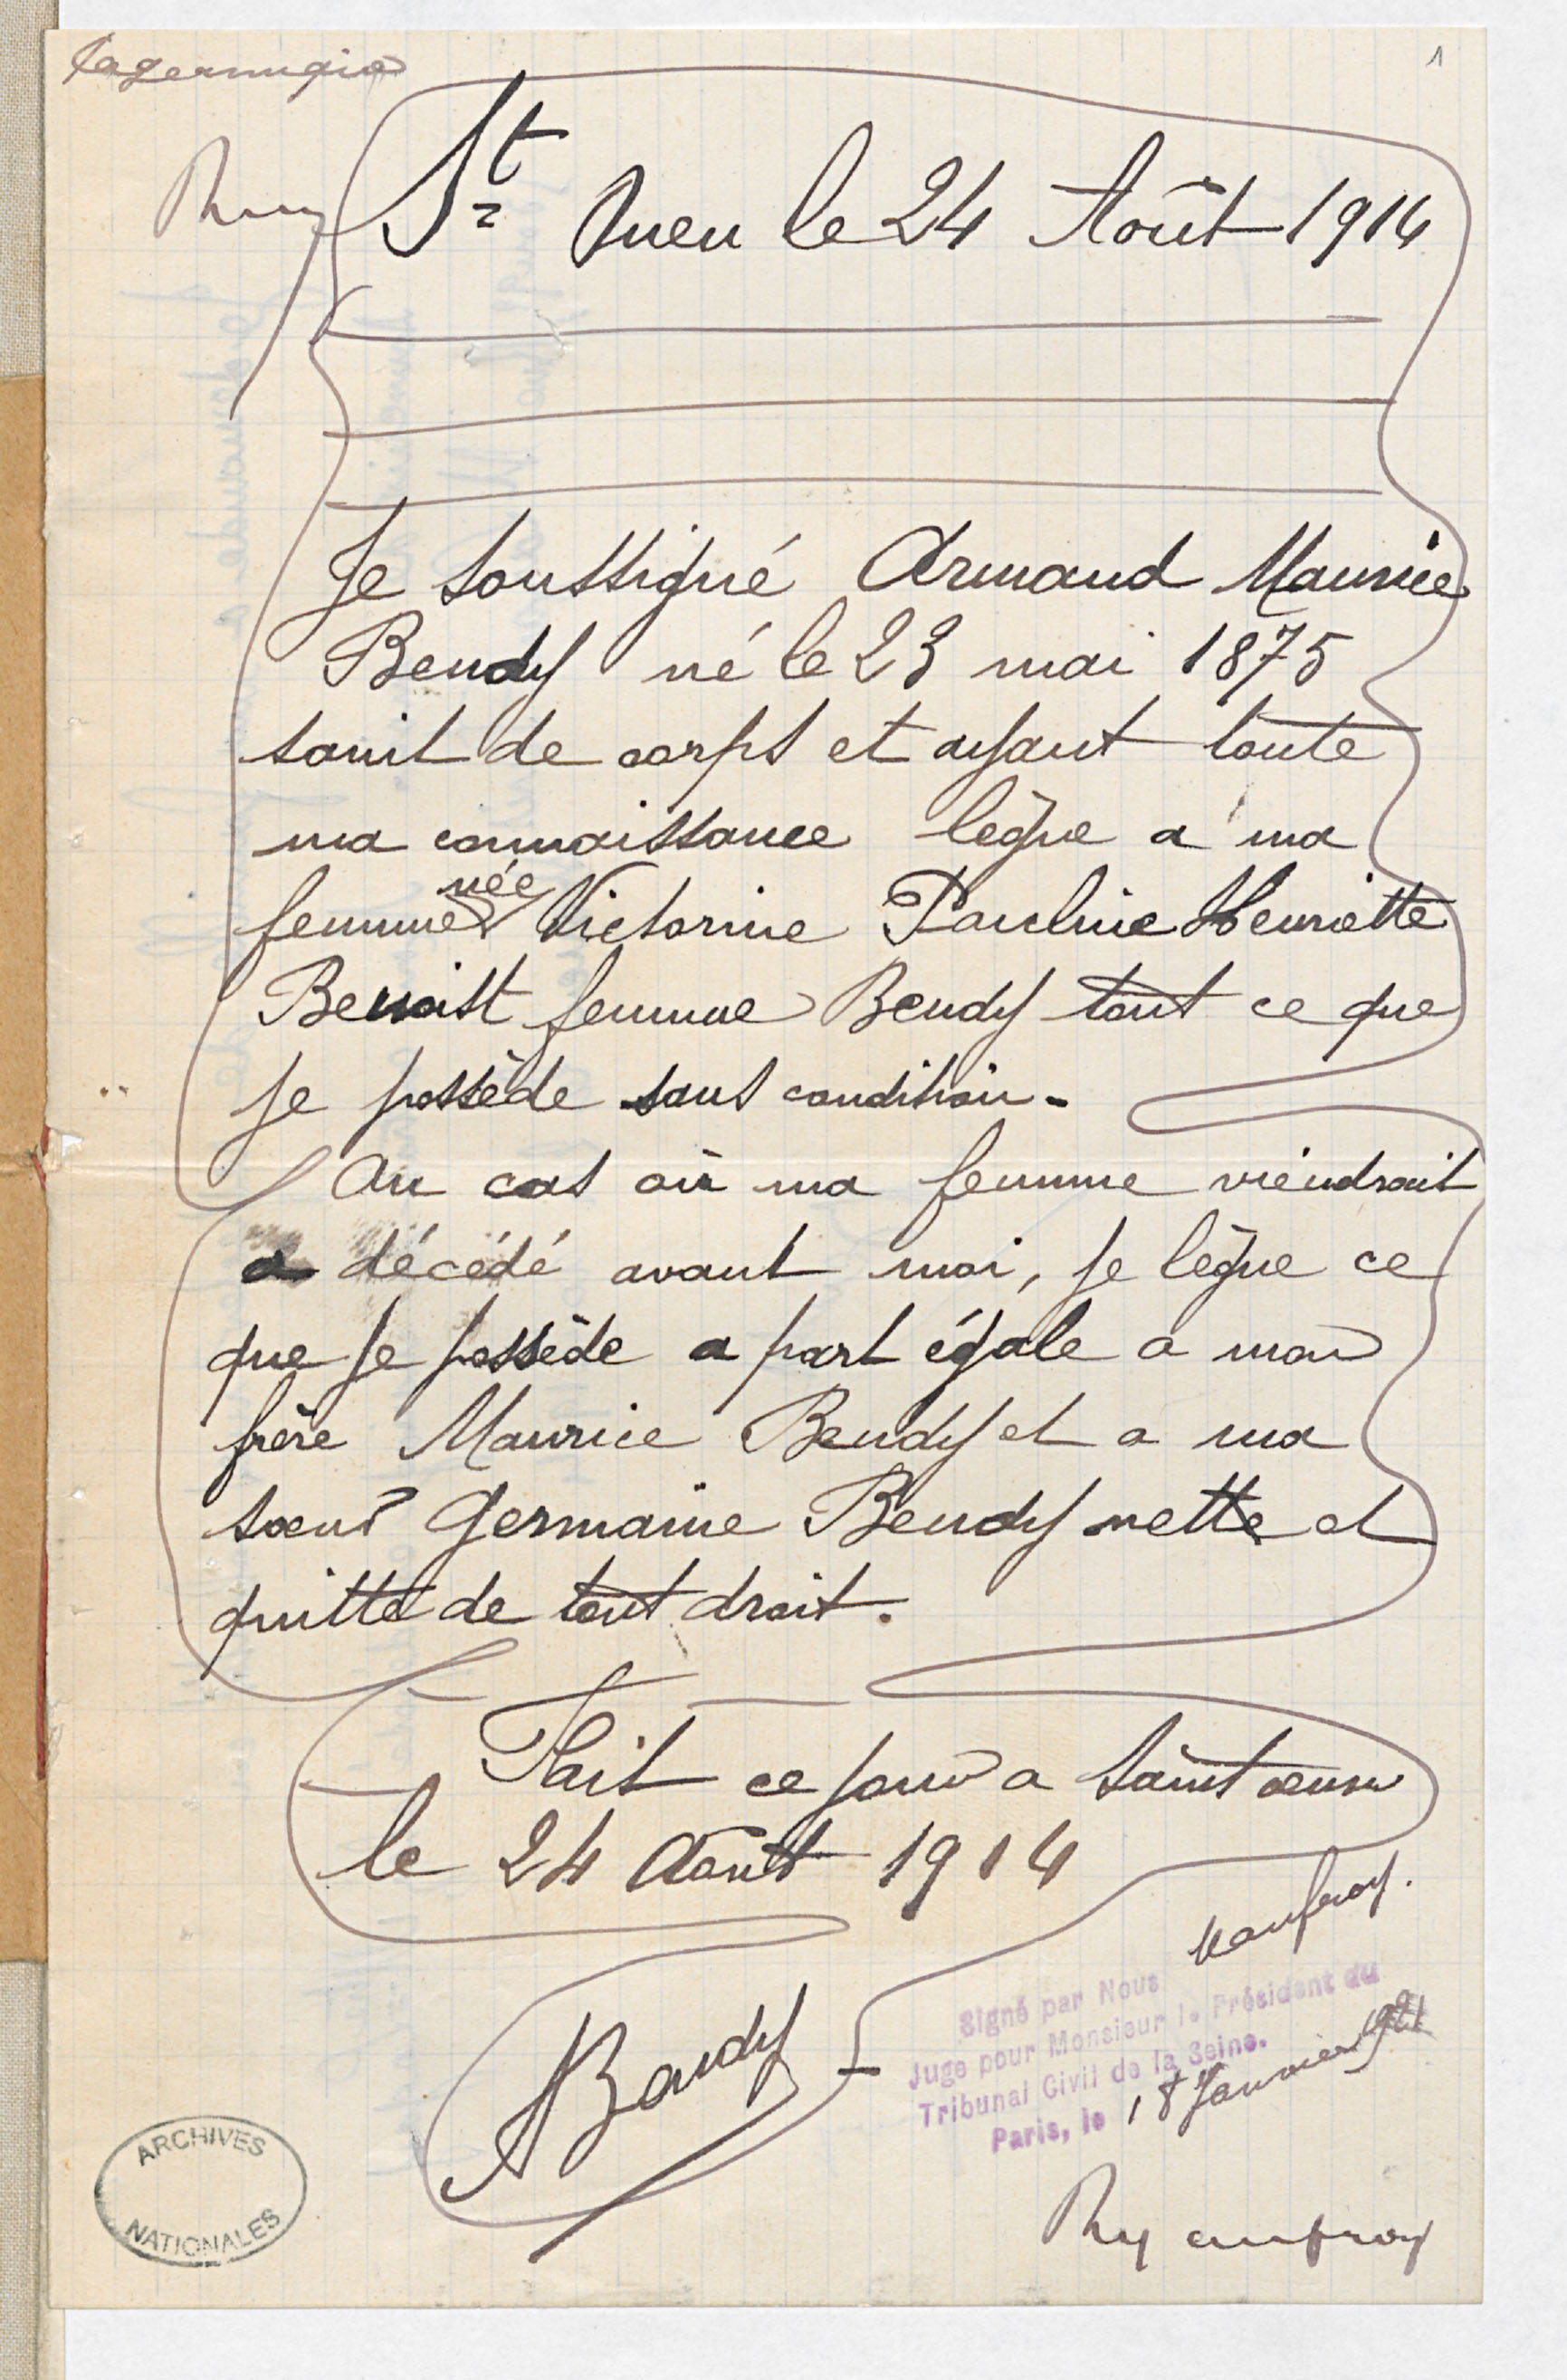 1
St Auen le 24 Août 1914
Je soussigné Armand Maurice
Beudy né le 23 mai 1875
sauit de corps et ayant toute
ma connaissance lègue a ma
femme née Victorine Pauline Henriette
Benoist femme Beudy tout ce que
je possède sans condition.
Au cas où ma femme viendrait
a décédé avant moi, je lègue ce
que je possède a part égale a mon
frère Maurice Beudy et a ma
sœur Germaine Beudy nette et
quitte de tout droit.
Fait ce jour a Saint œuen
le 24 Août 1914
ABeudy
Signé par Nous
Juge pour Monsieur le Président du
Tribunal Civil de la Seine.
Paris, le 18 Janvier 1921
ARCHIVES
NATIONALES